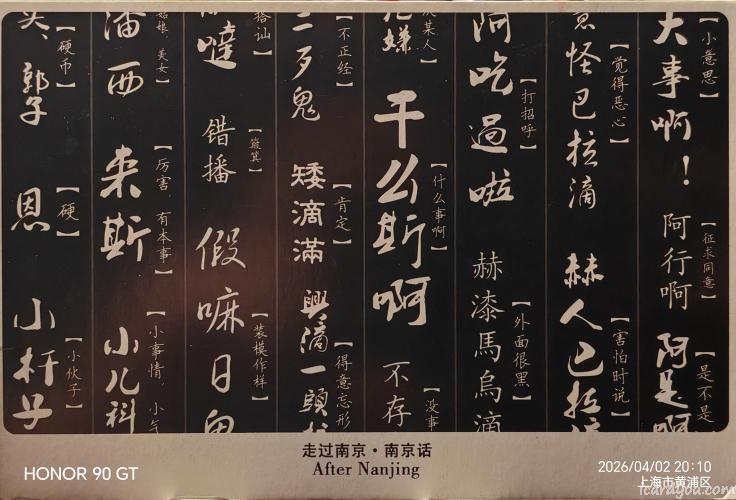 大事啊！【小意思】
阿行啊【征求同意】
阿是啊【是不是
怪巴拉滴【觉得恶心】
赫人巴拉滴【害怕时说】
阿吃過啦【打招呼】
赫漆馬烏滴【外面很黑】
嫌 某人】
干么斯啊【什么事啊】
不存【没事
二歹鬼【不正经】
矮滴滿【肯定】
興滴一頭【得意忘形
噠 搭讪】
错播【簸箕】
假嘛日鬼【装模作样】
潘西 姑娘 美女】
来斯【厉害 有本事】
小儿科【小事情 小气
郭子【硬币】
恩【硬】
小杆子【小伙子】
走过南京·南京话
After Nanjing
HONOR 90 GT
2026/04/02 20:10
上海市黄浦区